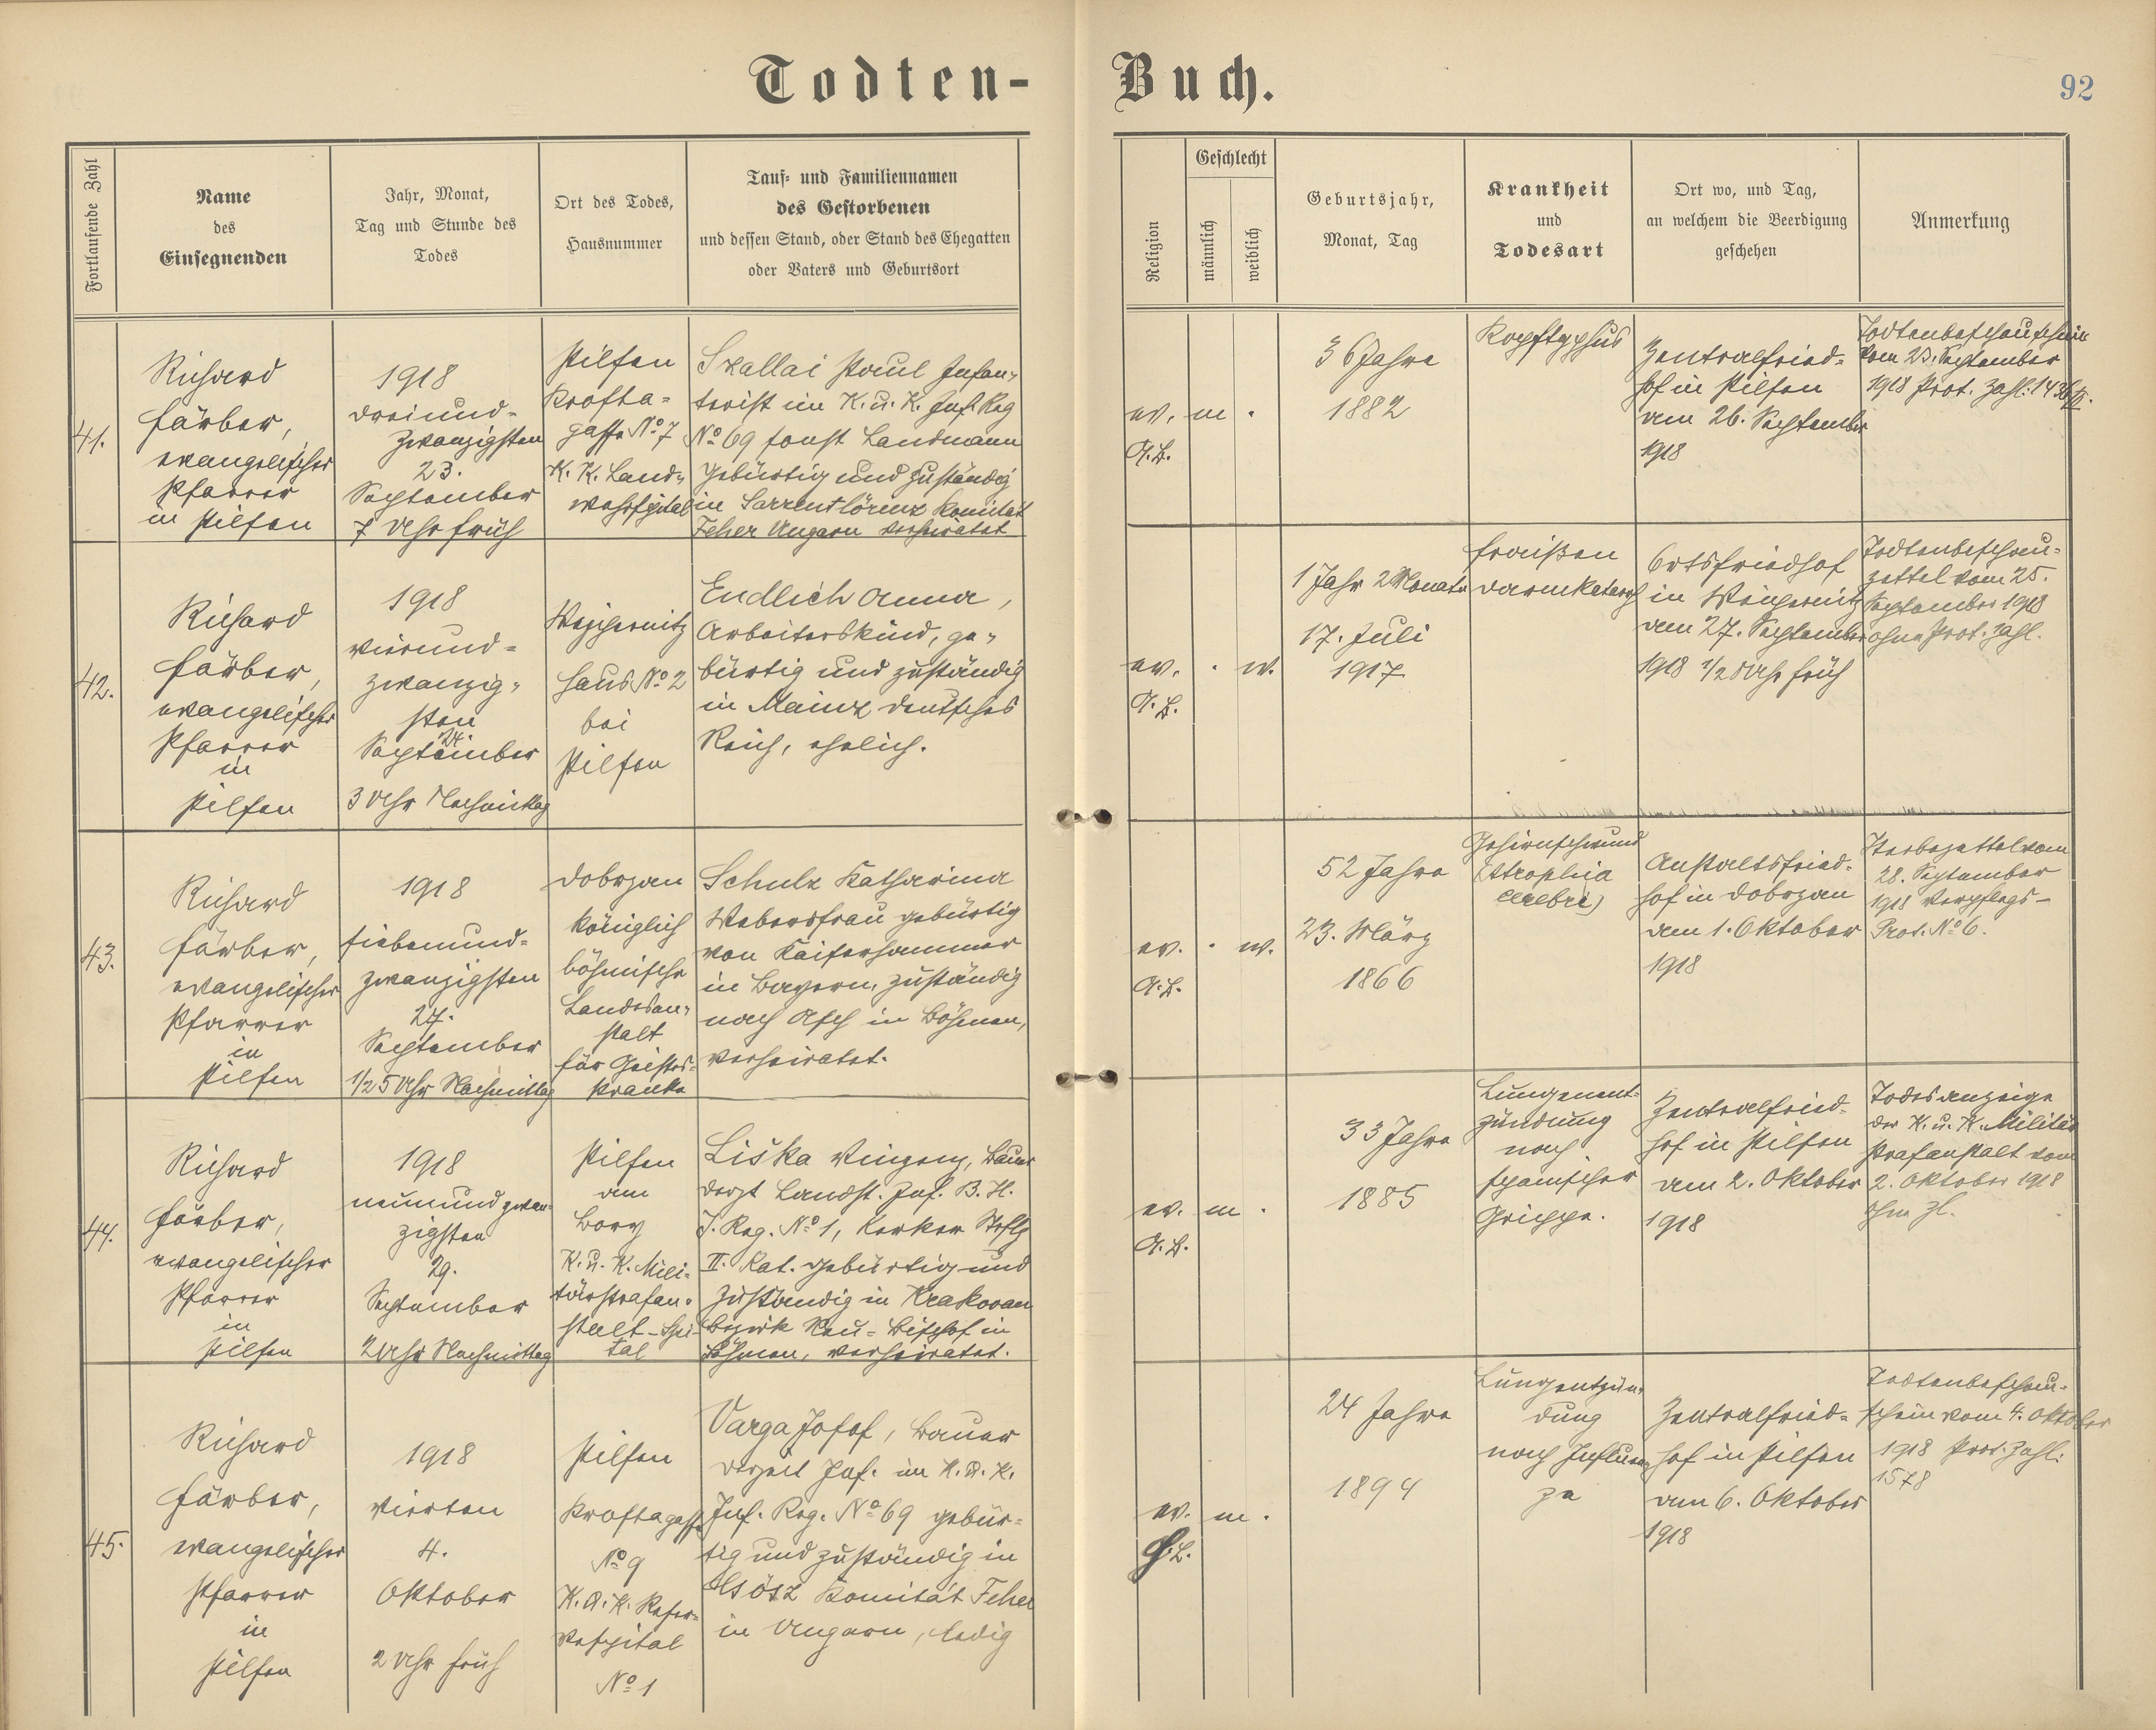 Todten-
Buch.
92
Fortlaufende Zahl
Name
des
Einsegnenden
Jahr, Monat,
Tag und Stunde des
Todes
Ort des Todes,
Hausnummer
Tauf- und Familiennamen
des Gestorbenen
und dessen Stand, oder Stand des Ehegatten
oder Vaters und Geburtsort
Religion
Geschlecht
männlich
weiblich
Geburtsjahr,
Monat, Tag
Krankheit
und
Todesart
Ort wo, und Tag,
an welchem die Beerdigung
geschehen
Anmerkung
41.
Richard
Färber,
evangelischer
Pfarrer
in Pilsen
1918
dreiund-
zwanzigsten
23.
September
7 Uhr früh
Pilsen
Krofta-
gasse No 7
K. K. Land-
wehrspital
Szallai Paul Infan-
terist im K. u. K. Inf. Reg
No 69 sonst Landmann
gebürtig und zuständig
in Sarrentlörinz Komitat
Feher Ungarn verheiratet
ev.
A. B.
m
36 Jahre
1882
Kopftyphus
Zentralfried-
hof in Pilsen
am 26. September
1918
Todtenbeschauschein
vom 23. September
1918 Prot. Zahl: 1436
42.
Richard
Färber,
evangelischer
Pfarrer
in
Pilsen
1918
vierund-
zwanzig-
sten
24.
September
3 Uhr Nachmittag
Wejpernitz
Haus No 2
bei
Pilsen
Endlich Anna,
Arbeiterskind, ge-
bürtig und zuständig
in Mainz deutsches
Reich, ehelich.
ev.
A. B.
w.
1 Jahr 2 Monate
17. Juli
1917
Fraißen
Darmkatarrh
Ortsfriedhof
in Wejpernitz
am 27. September
1918 1/2 8 Uhr früh
Todtenbeschau-
zettel vom 25.
September 1918
ohne Prot. Zahl.
43.
Richard
Färber,
evangelischer
Pfarrer
in
Pilsen
1918
siebenund-
zwanzigsten
27.
September
1/2 5 Uhr Nachmittag
Dobrzan
königlich
böhmische
Landesan-
stalt
für Geistes-
kranke
Schulz Katharina
Webersfrau gebürtig
von Kaiserhammer
in Bayern, zuständig
nach Asch in Böhmen,
verheiratet.
ev.
A. B.
w.
52 Jahre
23. März
1866
Gehirnschwund
(Atrophia
cerebri)
Anstaltsfried-
hof in Dobrzan
am 1. Oktober
1918
Sterbezettel vom
28. September
1918 Verpflegs-
Prot. No 6.
44.
Richard
Färber,
evangelischer
Pfarrer
in
Pilsen
1918
neunundzwan-
zigsten
29.
September
2 Uhr Nachmittag
Pilsen
am
Bory
K. u. K. Mili-
tärstrafan-
stalt-Spi-
tal
Liška Vinzenz, Bauer
derzt Landst. Inf. B. H.
I. Reg. No 1, Kerker Stflg
II. Kat. gebürtig und
zuständig in Krakovan
Bezirk Neu-Bischof in
Böhmen, verheiratet.
ev.
A. B.
m
33 Jahre
1885
Lungenent-
zündung
nach
spanischer
Grippe.
Zentralfried-
hof in Pilsen
am 2. Oktober
1918
Todesanzeige
der K. u. K. Militär
Strafanstalt vom
2. Oktober 1918
ohne Zl.
45.
Richard
Färber,
evangelischer
Pfarrer
in
Pilsen
1918
vierten
4.
Oktober
2 Uhr früh
Pilsen
Kroftagasse
No 9
K. u. K. Reser-
vespital
No 1
Varga Josef, Bauer
derzeit Inf. im K. u. K.
Inf. Reg. No 69 gebür-
tig und zuständig in
Csösz Komitát Feher
in Ungarn, ledig
ev.
A. B.
m
24 Jahre
1894
Lungentzün-
dung
nach Influen-
za
Zentralfried-
hof in Pilsen
am 6. Oktober
1918
Todtenbeschau-
schein vom 4. Oktober
1918 Prot. Zahl:
1578